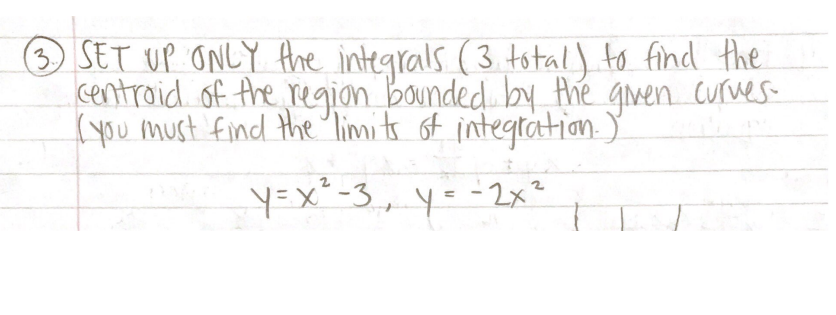 ③ SET UP ONLY the integrals (3 total) to find the
centroid of the region bounded by the given curves.
(you must find the limits of integration.)
y=x²-3, y=-2x²